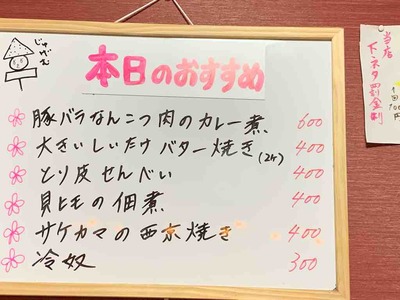 じゅげん
本日のおすすめ
豚バラなんこつ肉のカレー煮 600
大きいしいたけバター焼き(2ヶ) 400
とり皮せんべい 400
貝ヒモの佃煮 400
サケカマの西京焼き 400
冷奴 300
当店
下ネタ罰金制
1回
100円